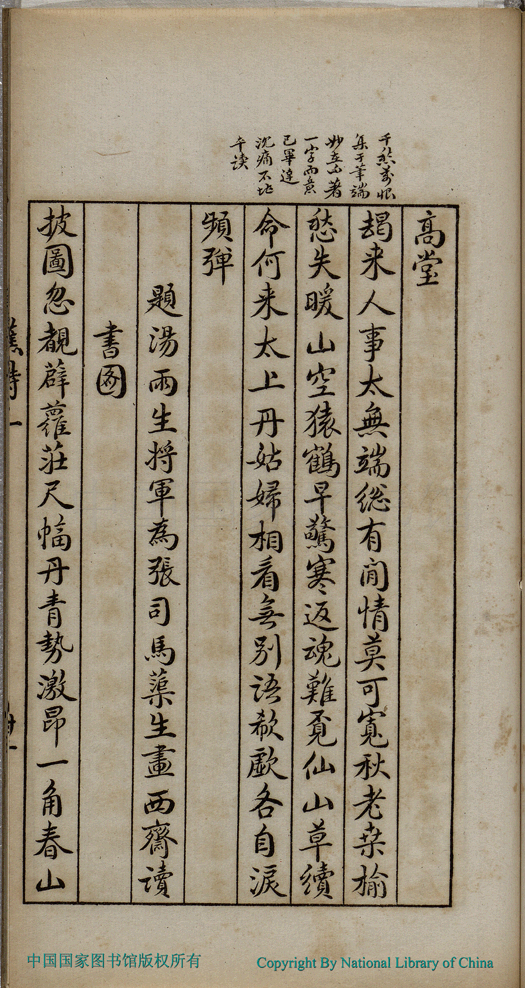 千愁萬恨
集于筆端
妙在不著
一字而意
已畢達
沈痛不堪
卒读
高堂
朅来人事太無端総有閒情莫可寬秋老桒榆
愁失暖山空猿鶴早驚寒返魂難覔仙山草續
命何来太上丹姑婦相看無別語欷歔各自淚
頻弹
題湯雨生将軍為張司馬蕖生畫西齋讀
書圖
披圖忽覩薜蘿莊尺幅丹青勢激昂一角春山
中国国家图书馆版权所有
Copyright By National Library of China